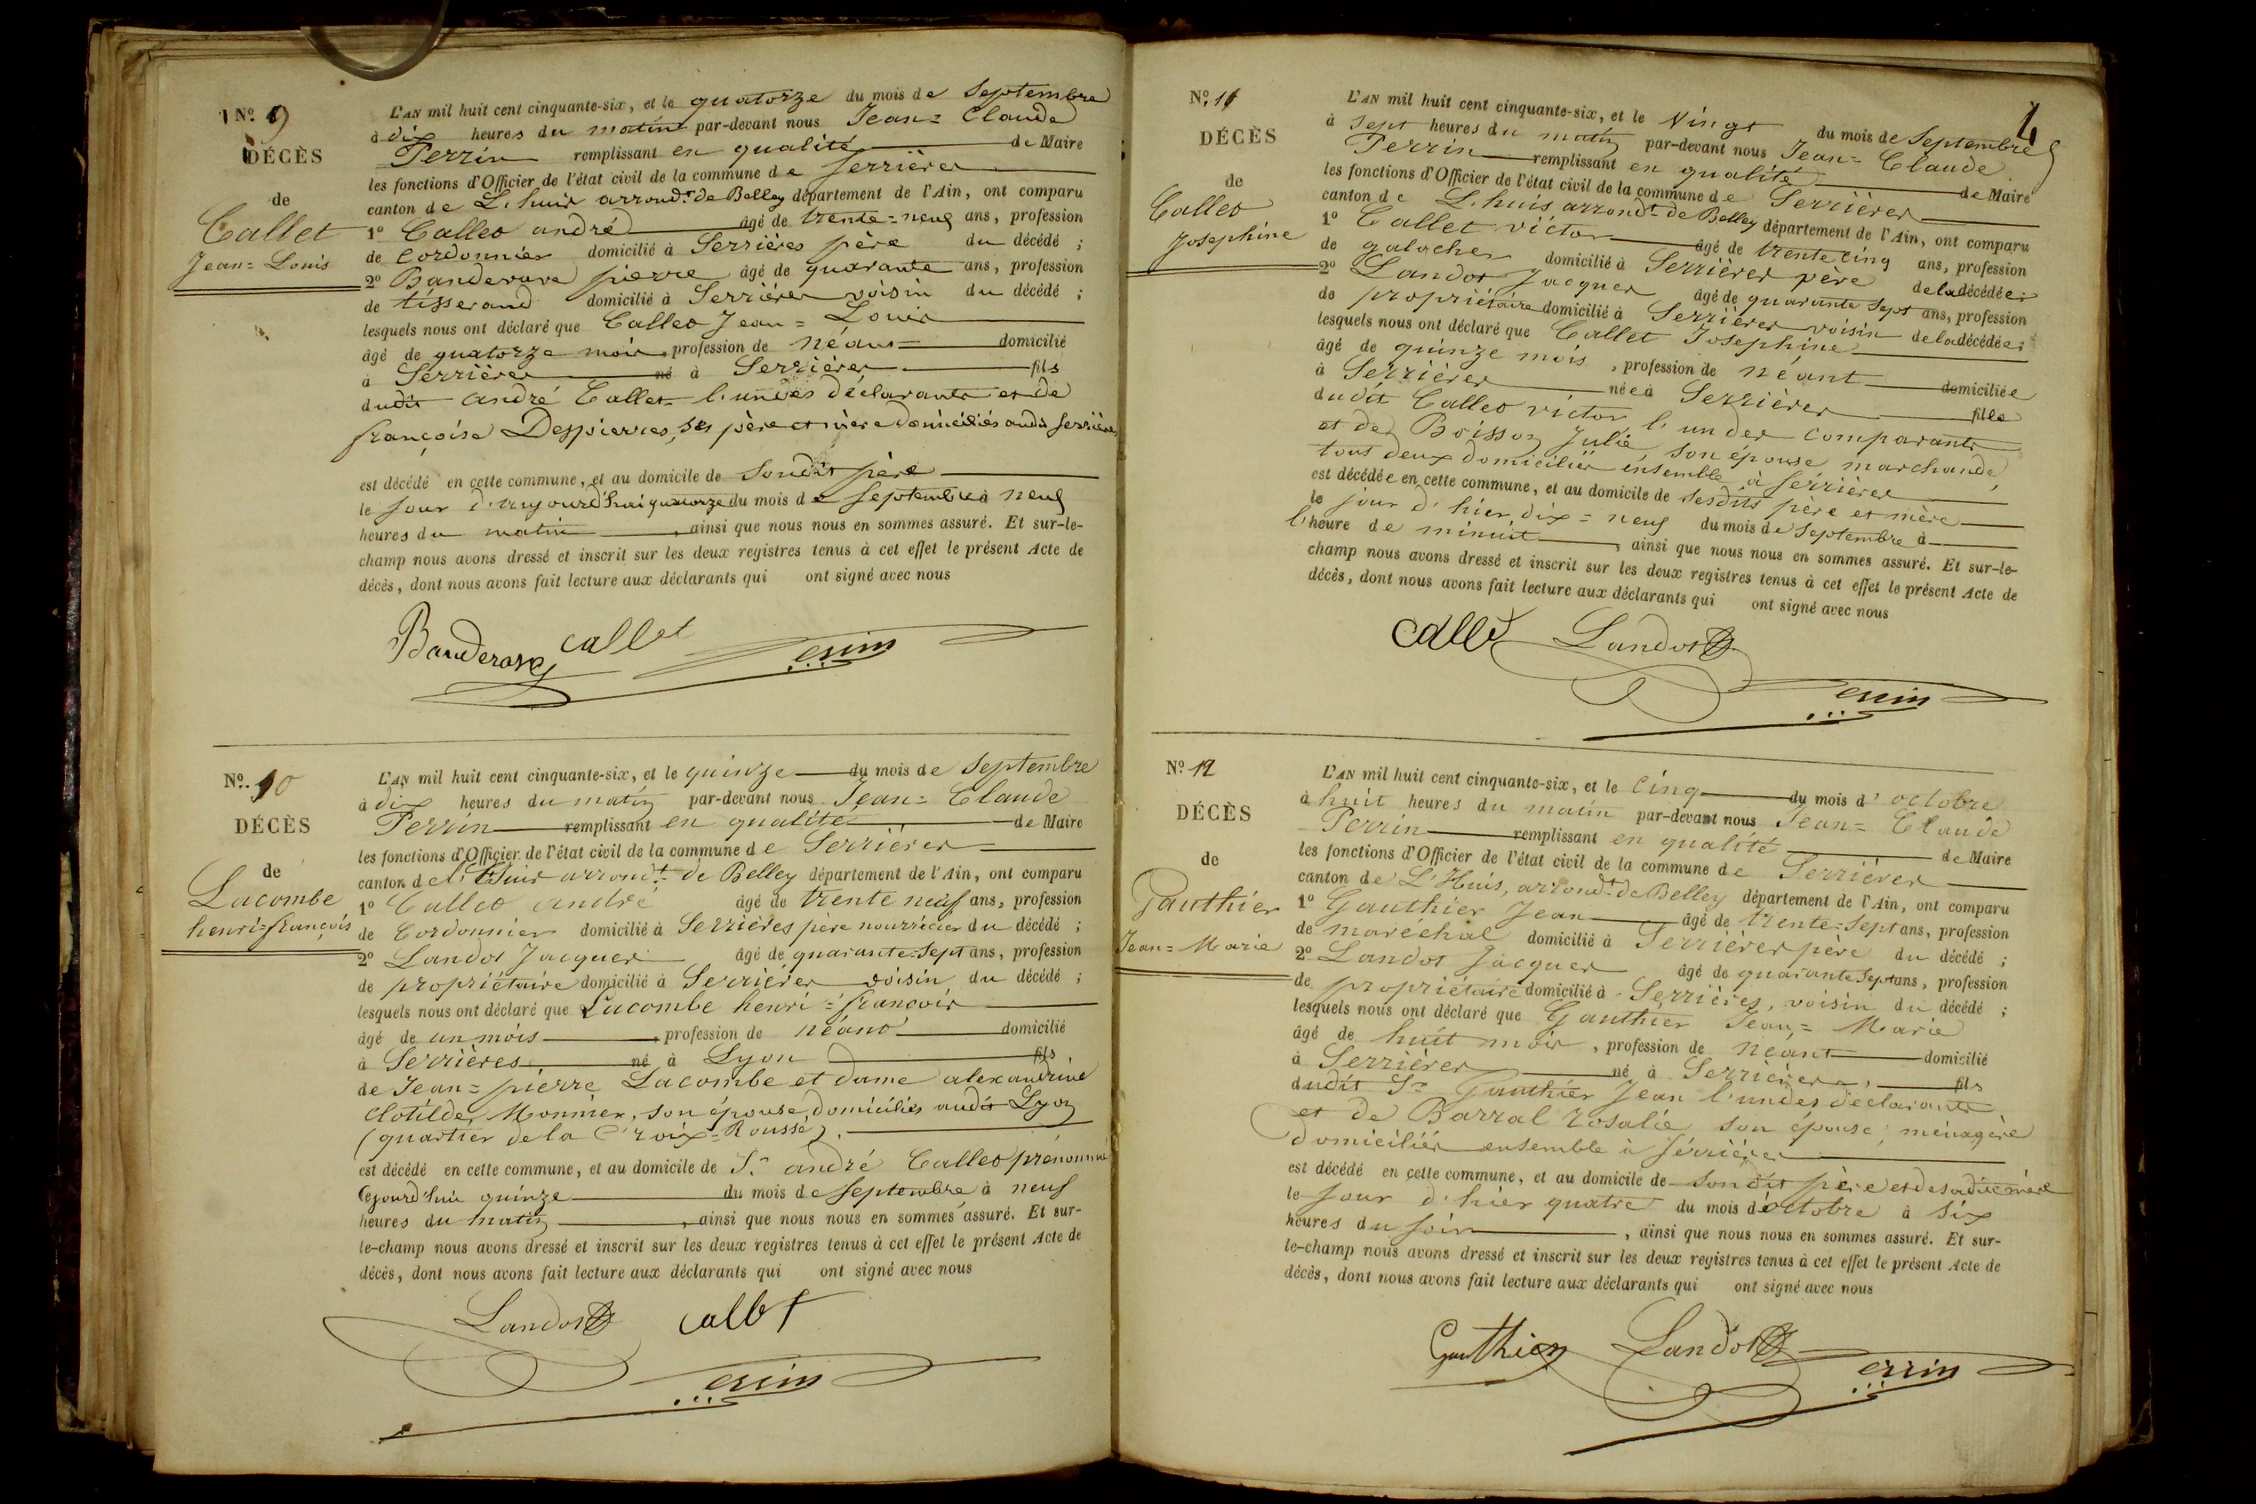 N.º 9
DÉCÈS
de
Callet
Jean= Louis
L'AN mil huit cent cinquante-six, et le quatorze du mois de Septembre
à dix heures du matin par-devant nous Jean= Claude
Perrin remplissant en qualité de Maire
les fonctions d'Officier de l'état civil de la commune de Serrières
canton de L. huis arrond.t de Belley département de l'Ain, ont comparu
1º Callet andré âgé de trente=neuf ans, profession
de Cordonnier domicilié à Serrières père du décédé ;
2º pierre âgé de quarante ans, profession
de tisserand domicilié à Serrières voisin du décédé ;
lesquels nous ont déclaré que Callet Jean= Louis
âgé de quatorze mois, profession de néant domicilié
à Serrières né à Serrières fils
dudit andré Callet l'un des déclarants et de
françoise Despierres, ses père et mère domiciliés audit Serrières
est décédé en cette commune, et au domicile de Sondit père
le jour d'aujourd'hui quatorze du mois de Septembre à neuf
heures du matin, ainsi que nous nous en sommes assuré. Et sur-le-
champ nous avons dressé et inscrit sur les deux registres tenus à cet effet le présent Acte de
décès, dont nous avons fait lecture aux déclarants qui ont signé avec nous
callet
Perrin
N.º 10
DÉCÈS
de
Lacombe
henri=françois
L'AN mil huit cent cinquante-six, et le quinze du mois de Septembre
à dix heures du matin par-devant nous Jean= Claude
Perrin remplissant en qualité de Maire
les fonctions d'Officier de l'état civil de la commune de Serrières
canton de l'huis arrond.t de Belley département de l'Ain, ont comparu
1º Callet andré âgé de trente neuf ans, profession
de Cordonnier domicilié à Serrières père nourricier du décédé ;
2º Landot Jacques âgé de quarante=Sept ans, profession
de propriétaire domicilié à Serrières voisin du décédé ;
lesquels nous ont déclaré que Lacombe henri=françois
âgé de un mois, profession de néant domicilié
à Serrières né à Lyon fils
de Jean=pierre Lacombe et dame alexandrine
Clotilde Monnier, son épouse, domiciliés audit Lyon
(quartier de la Croix=Rousse).
est décédé en cette commune, et au domicile de S.r andré Callet prénommé
cejourd'hui quinze du mois de Septembre à neuf
heures du matin, ainsi que nous nous en sommes assuré. Et sur-
le-champ nous avons dressé et inscrit sur les deux registres tenus à cet effet le présent Acte de
décès, dont nous avons fait lecture aux déclarants qui ont signé avec nous
Landot callet
Perrin
4
N.º 11
DÉCÈS
de
Callet
Josephine
L'AN mil huit cent cinquante-six, et le Vingt du mois de Septembre
à Sept heures du matin par-devant nous Jean= Claude
Perrin remplissant en qualité de Maire
les fonctions d'Officier de l'état civil de la commune de Serrières
canton de L. huis arrond.t de Belley département de l'Ain, ont comparu
1º Callet victor âgé de trente cinq ans, profession
de galocher domicilié à Serrières père de la décédée ;
2º Landot Jacques âgé de quarante Sept ans, profession
de propriétaire domicilié à Serrières voisin de la décédée ;
lesquels nous ont déclaré que Callet Josephine
âgé de quinze mois, profession de néant domiciliée
à Serrières née à Serrières fille
dudit Callet victor l'un des comparants
et de Boisson Julie son épouse marchande,
tous deux domiciliés ensemble à Serrières
est décédée en cette commune, et au domicile de Sesdits père et mère
le jour d'hier dix=neuf du mois de Septembre à
l'heure de minuit, ainsi que nous nous en sommes assuré. Et sur-le-
champ nous avons dressé et inscrit sur les deux registres tenus à cet effet le présent Acte de
décès, dont nous avons fait lecture aux déclarants qui ont signé avec nous
callet Landot
Perrin
N.º 12
DÉCÈS
de
Gauthier
Jean= Marie
L'AN mil huit cent cinquante-six, et le Cinq du mois d'octobre
à huit heures du matin par-devant nous Jean= Claude
Perrin remplissant en qualité de Maire
les fonctions d'Officier de l'état civil de la commune de Serrières
canton de L'Huis, arrond.t de Belley département de l'Ain, ont comparu
1º Gauthier Jean âgé de trente=Sept ans, profession
de maréchal domicilié à Serrières père du décédé ;
2º Landot Jacques âgé de quarante Sept ans, profession
de propriétaire domicilié à Serrières, voisin du décédé ;
lesquels nous ont déclaré que Gauthier Jean= Marie
âgé de huit mois, profession de néant domicilié
à Serrières né à Serrières, fils
dudit S.r Gauthier Jean l'un des déclarants
et de Barral rosalie son épouse, ménagère
domiciliés ensemble à Serrières
est décédé en cette commune, et au domicile de sondit père et de sadite mère
le jour d'hier quatre du mois d'octobre à Six
heures du soir, ainsi que nous nous en sommes assuré. Et sur-
le-champ nous avons dressé et inscrit sur les deux registres tenus à cet effet le présent Acte de
décès, dont nous avons fait lecture aux déclarants qui ont signé avec nous
Gauthier Landot
Perrin